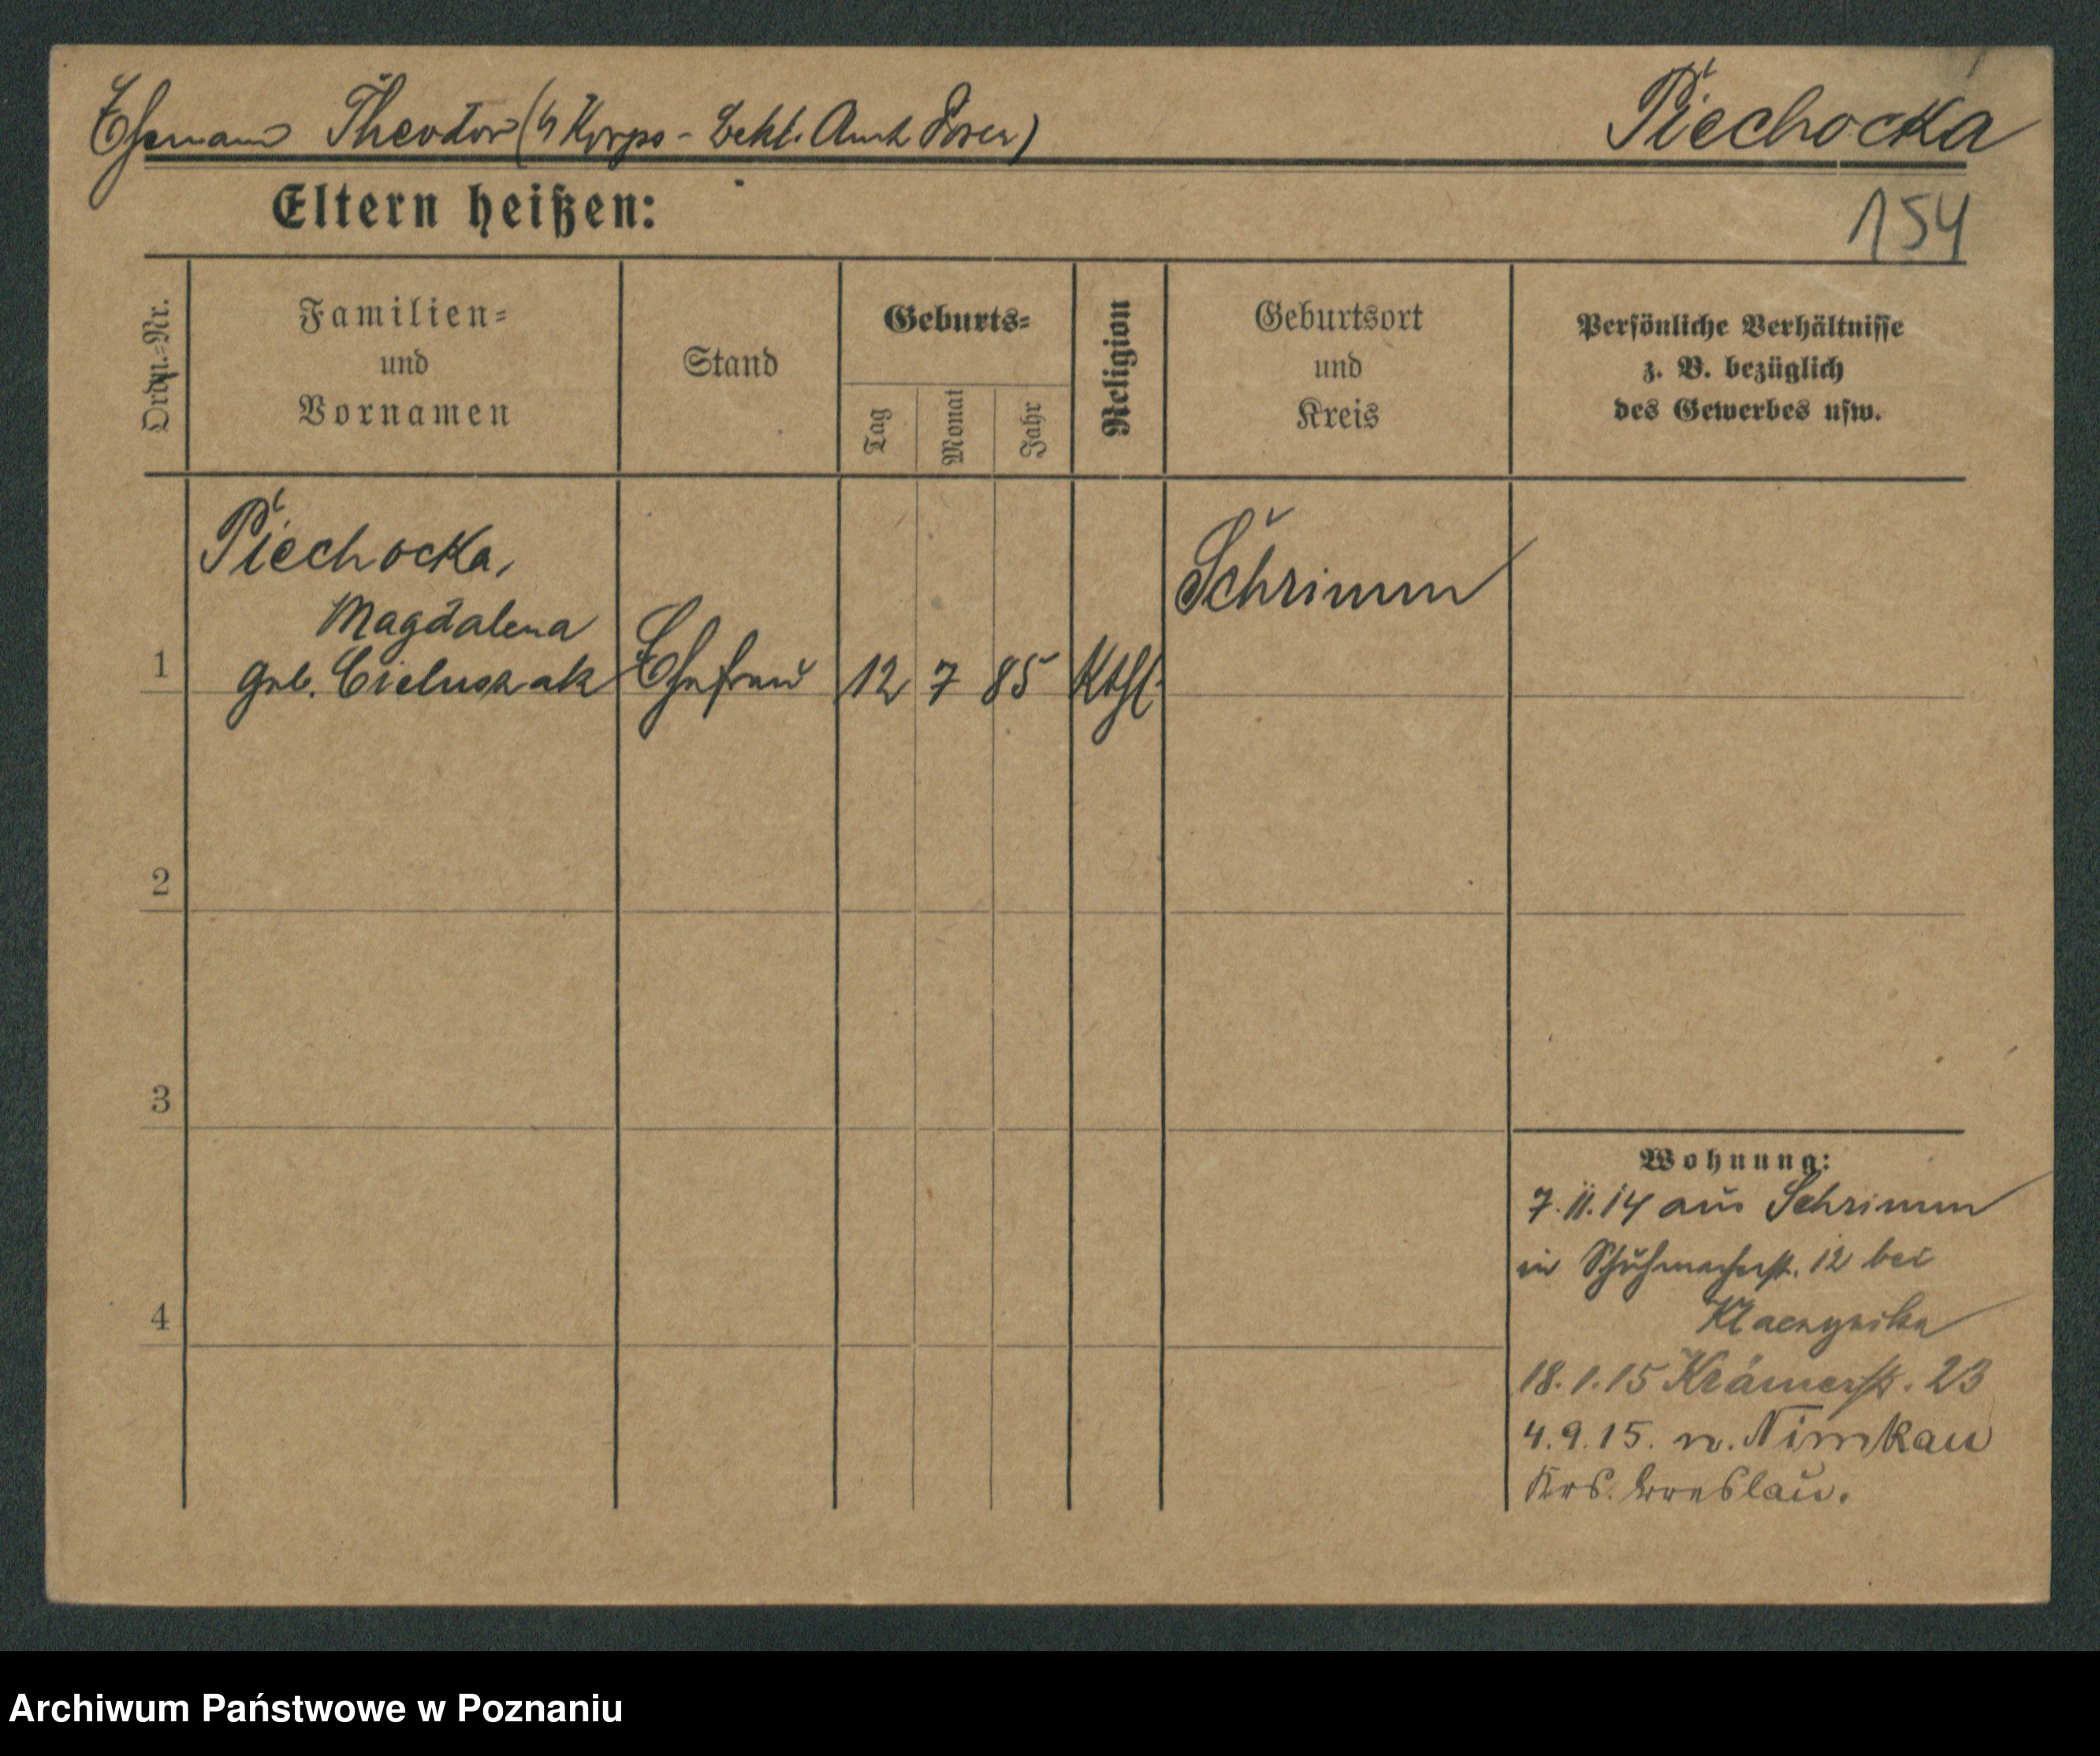 Ehemann Theodor (5 Korps - Bekl. Amt Posen)
Piechocka
Eltern heißen:
154
Ordn.=Nr.
Familien=
und
Vornamen
Stand
Geburts=
Tag
Monat
Jahr
Religion
Geburtsort
und
Kreis
Persönliche Verhältnisse
z. B. bezüglich
des Gewerbes usw.
1
Piechocka,
Magdalena
geb. Cieluszak
Ehefrau
12
7
85
Kthl.
Schrimm
2
3
4
Wohnung:
7.11.14 aus Schrimm
in Schuhmacherst. 12 bei
18.1.15 Krämerstr. 23
4.9.15. n. Nimkau
Krs. Breslau.
Archiwum Państwowe w Poznaniu